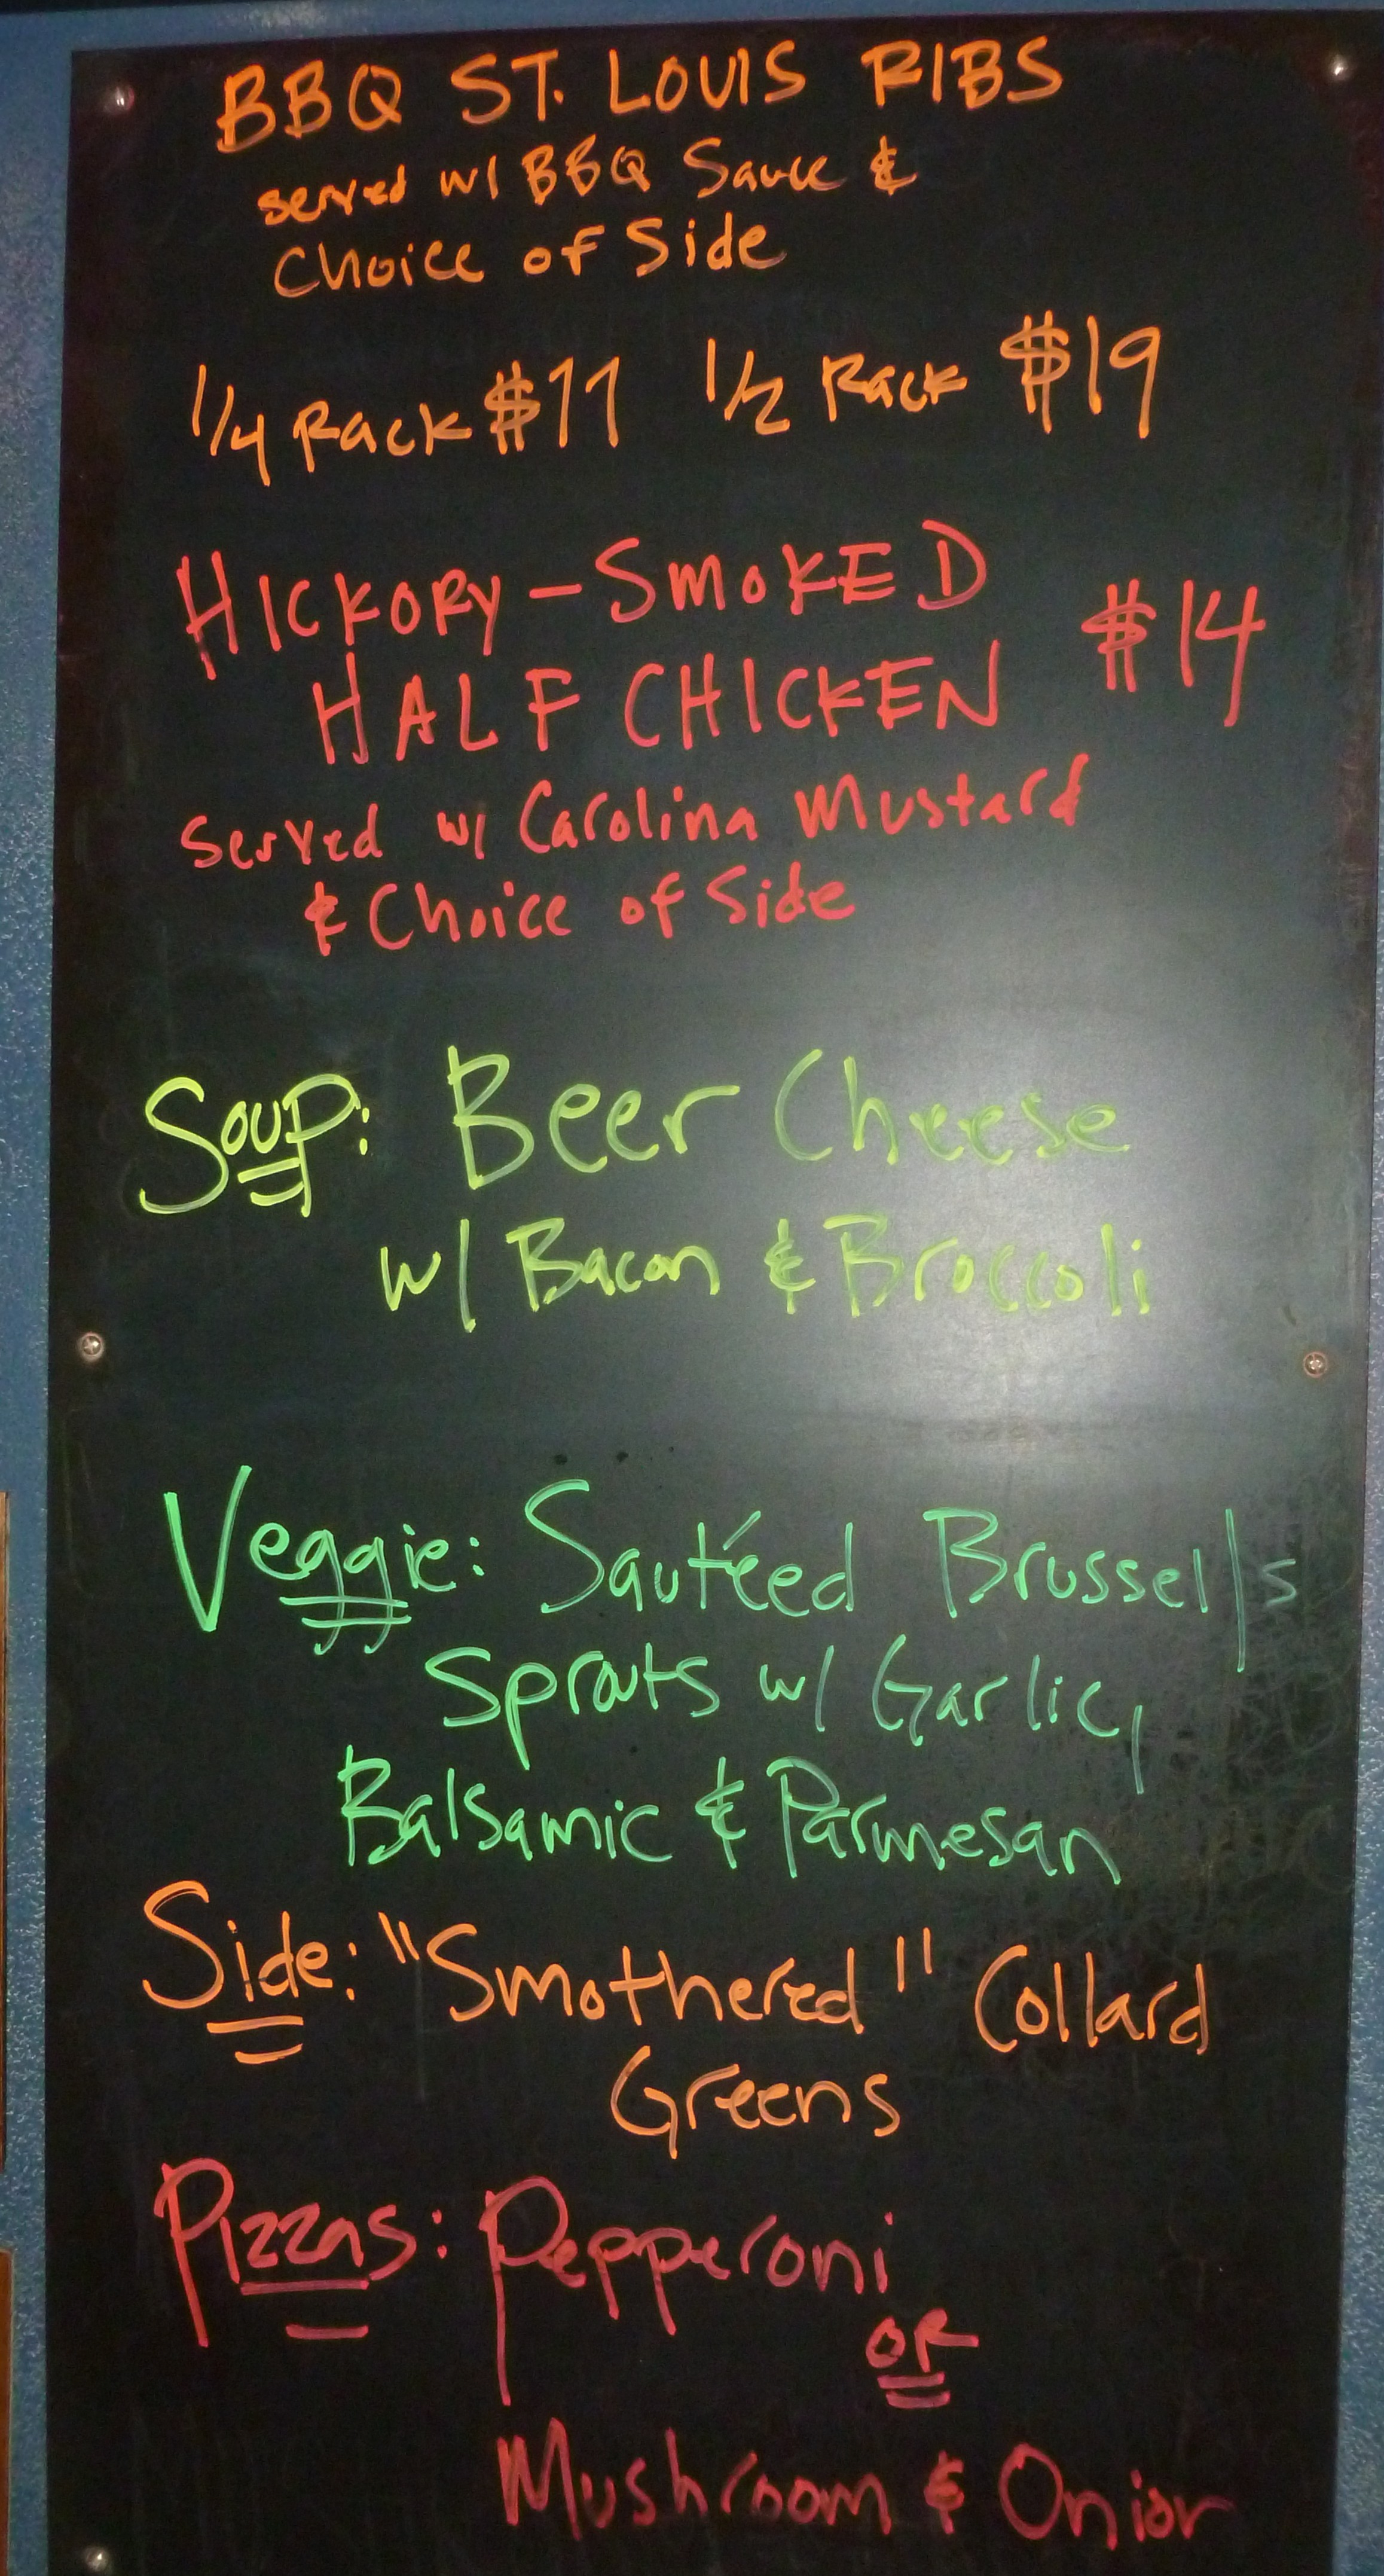 BBQ ST. LOUIS RIBS
served w/ BBQ Sauce &
Choice of Side
1/4 Rack $11 1/2 Rack $19
HICKORY-SMOKED
HALF CHICKEN $14
Served w/ Carolina Mustard
& Choice of Side
Soup: Beer Cheese
w/ Bacon & Broccoli
Veggie: Sautéed Brussel|s
Sprouts w/ Garlic,
Balsamic & Parmesan
Side: "Smothered" Collard
Greens
Pizzas: Pepperoni
OR
Mushroom & Onion